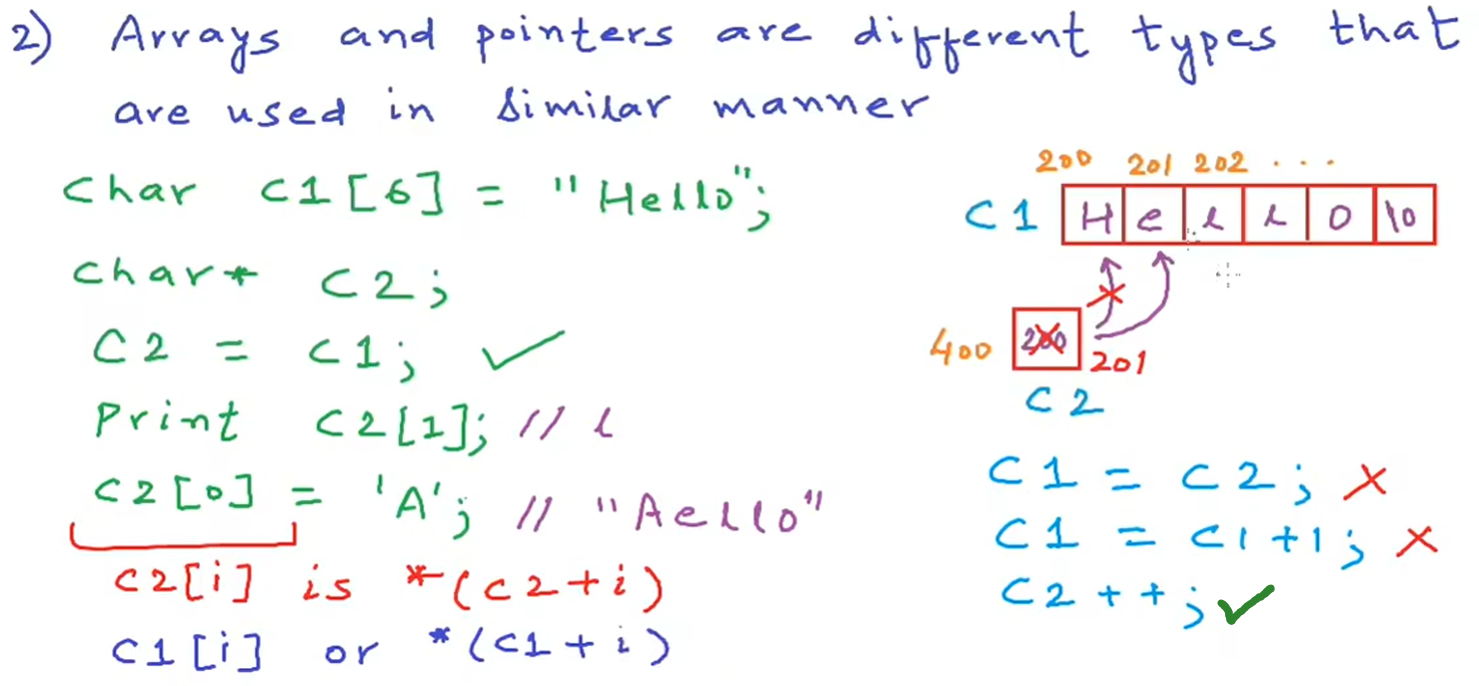 2) Arrays and pointers are different types that
are used in similar manner
Char C1[6] = "Hello";
Char* C2;
C2 = C1; ✓
Print C2[1]; // l
C2[0] = 'A'; // "Aello"
C2[i] is *(C2+i)
C1[i] or *(C1+i)
200 201 202 ...
C1 H e l l o \0
400 200 201
C2
C1 = C2; ×
C1 = C1+1; ×
C2++; ✓